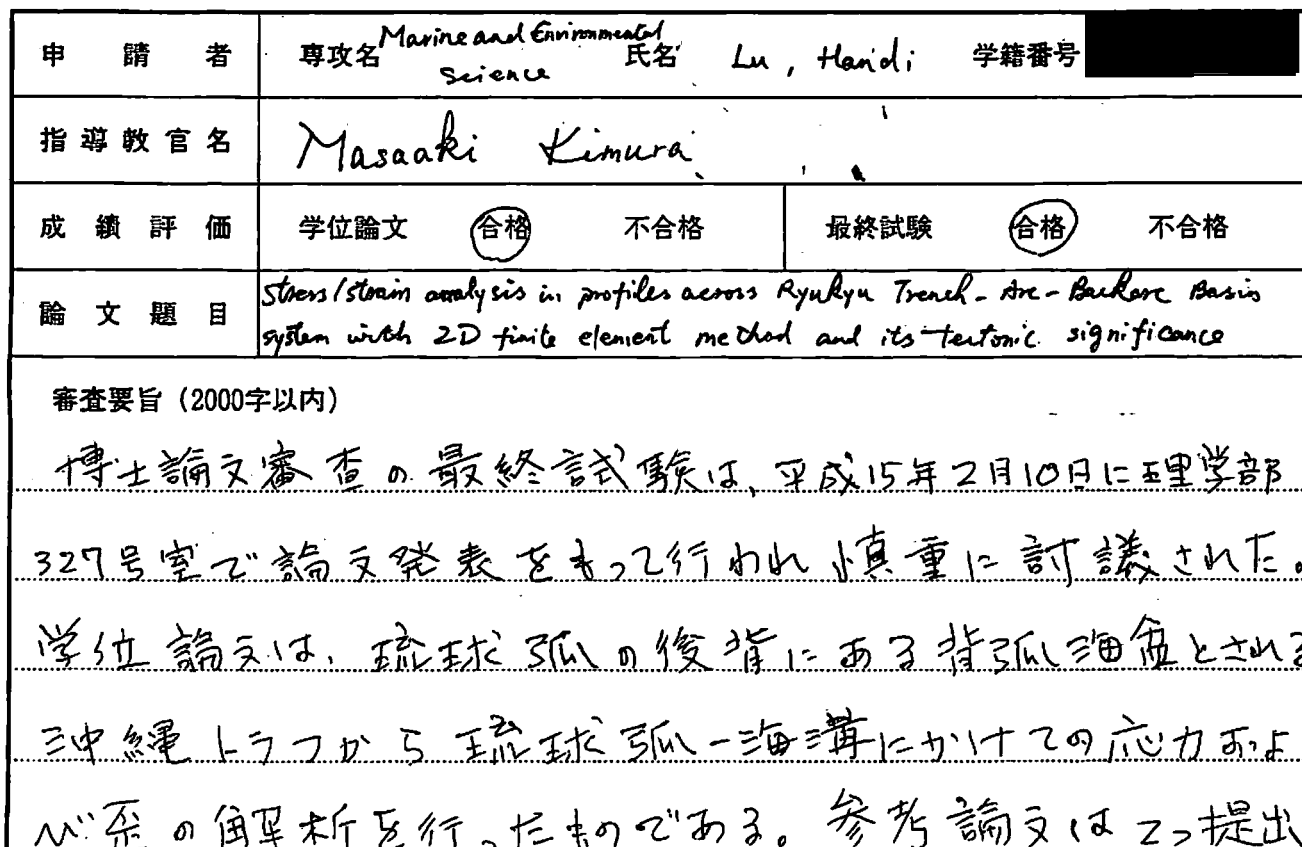 申請者 専攻名 Marine and Environmental Science 氏名 Lu, Handi 学籍番号
指導教官名 Masaaki Kimura
成績評価 学位論文 合格 不合格 最終試験 合格 不合格
論文題目 Stress/strain analysis in profiles across Ryukyu Trench-Arc-Backarc Basin
system with 2D finite element method and its tectonic significance
審査要旨(2000字以内)
博士論文審査の最終試験は、平成15年2月10日に理学部
327号室で論文発表をもって行われ慎重に討議された。
学位論文は、琉球弧の後背にある背弧海盆とされる
沖縄トラフから琉球弧-海溝にかけての応力およ
び歪の解析を行ったものである。参考論文は2つ提出